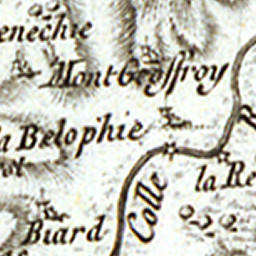 enechie
Montgeoffroy
la Belophie
la Re
Colle
Biard